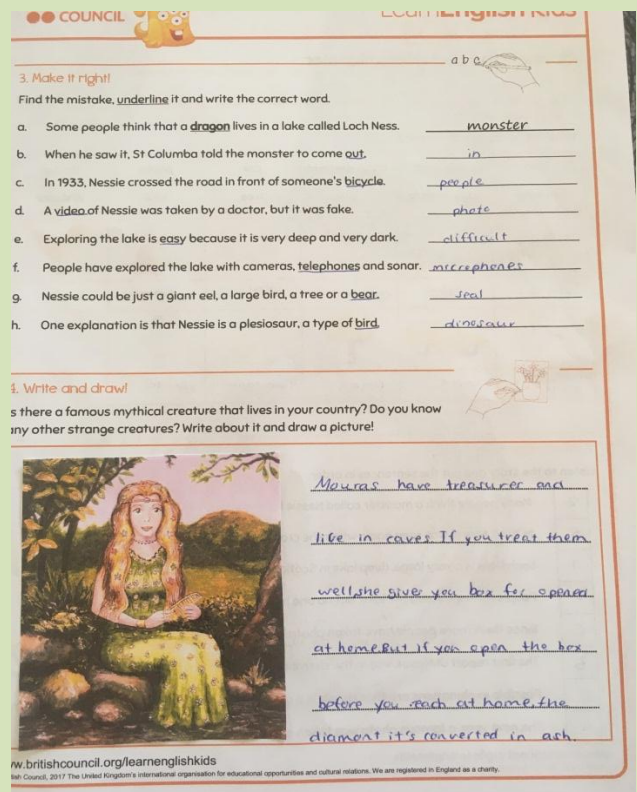 COUNCIL
LearnEnglish Kids
a b c
3. Make it right!
Find the mistake, underline it and write the correct word.
a. Some people think that a dragon lives in a lake called Loch Ness. monster
b. When he saw it, St Columba told the monster to come out. in
c. In 1933, Nessie crossed the road in front of someone's bicycle. people
d. A video of Nessie was taken by a doctor, but it was fake. photo
e. Exploring the lake is easy because it is very deep and very dark. difficult
f. People have explored the lake with cameras, telephones and sonar. mccrephones
g. Nessie could be just a giant eel, a large bird, a tree or a bear. seal
h. One explanation is that Nessie is a plesiosaur, a type of bird. dinosaur
4. Write and draw!
s there a famous mythical creature that lives in your country? Do you know
any other strange creatures? Write about it and draw a picture!
Mouras have treasurer and
live in caves. If you treat them
well, she gives you box for opened
at home. But if you open the box
before you reach at home, the
diamont it's converted in ash.
w.britishcouncil.org/learnenglishkids
ish Council, 2017 The United Kingdom's international organisation for educational opportunities and cultural relations. We are registered in England as a charity.